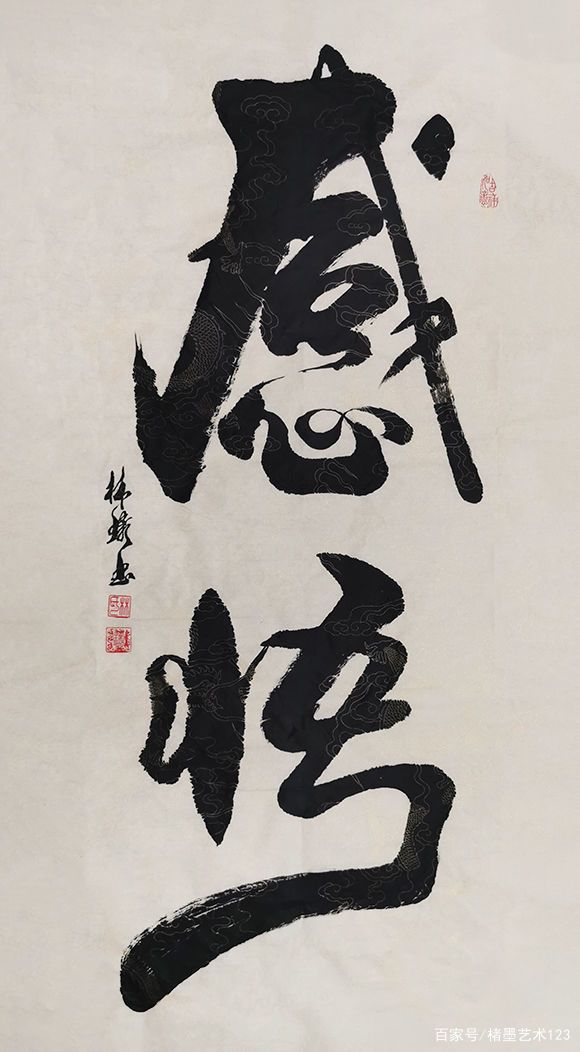 感悟
林 书
百家号/楮墨艺术123